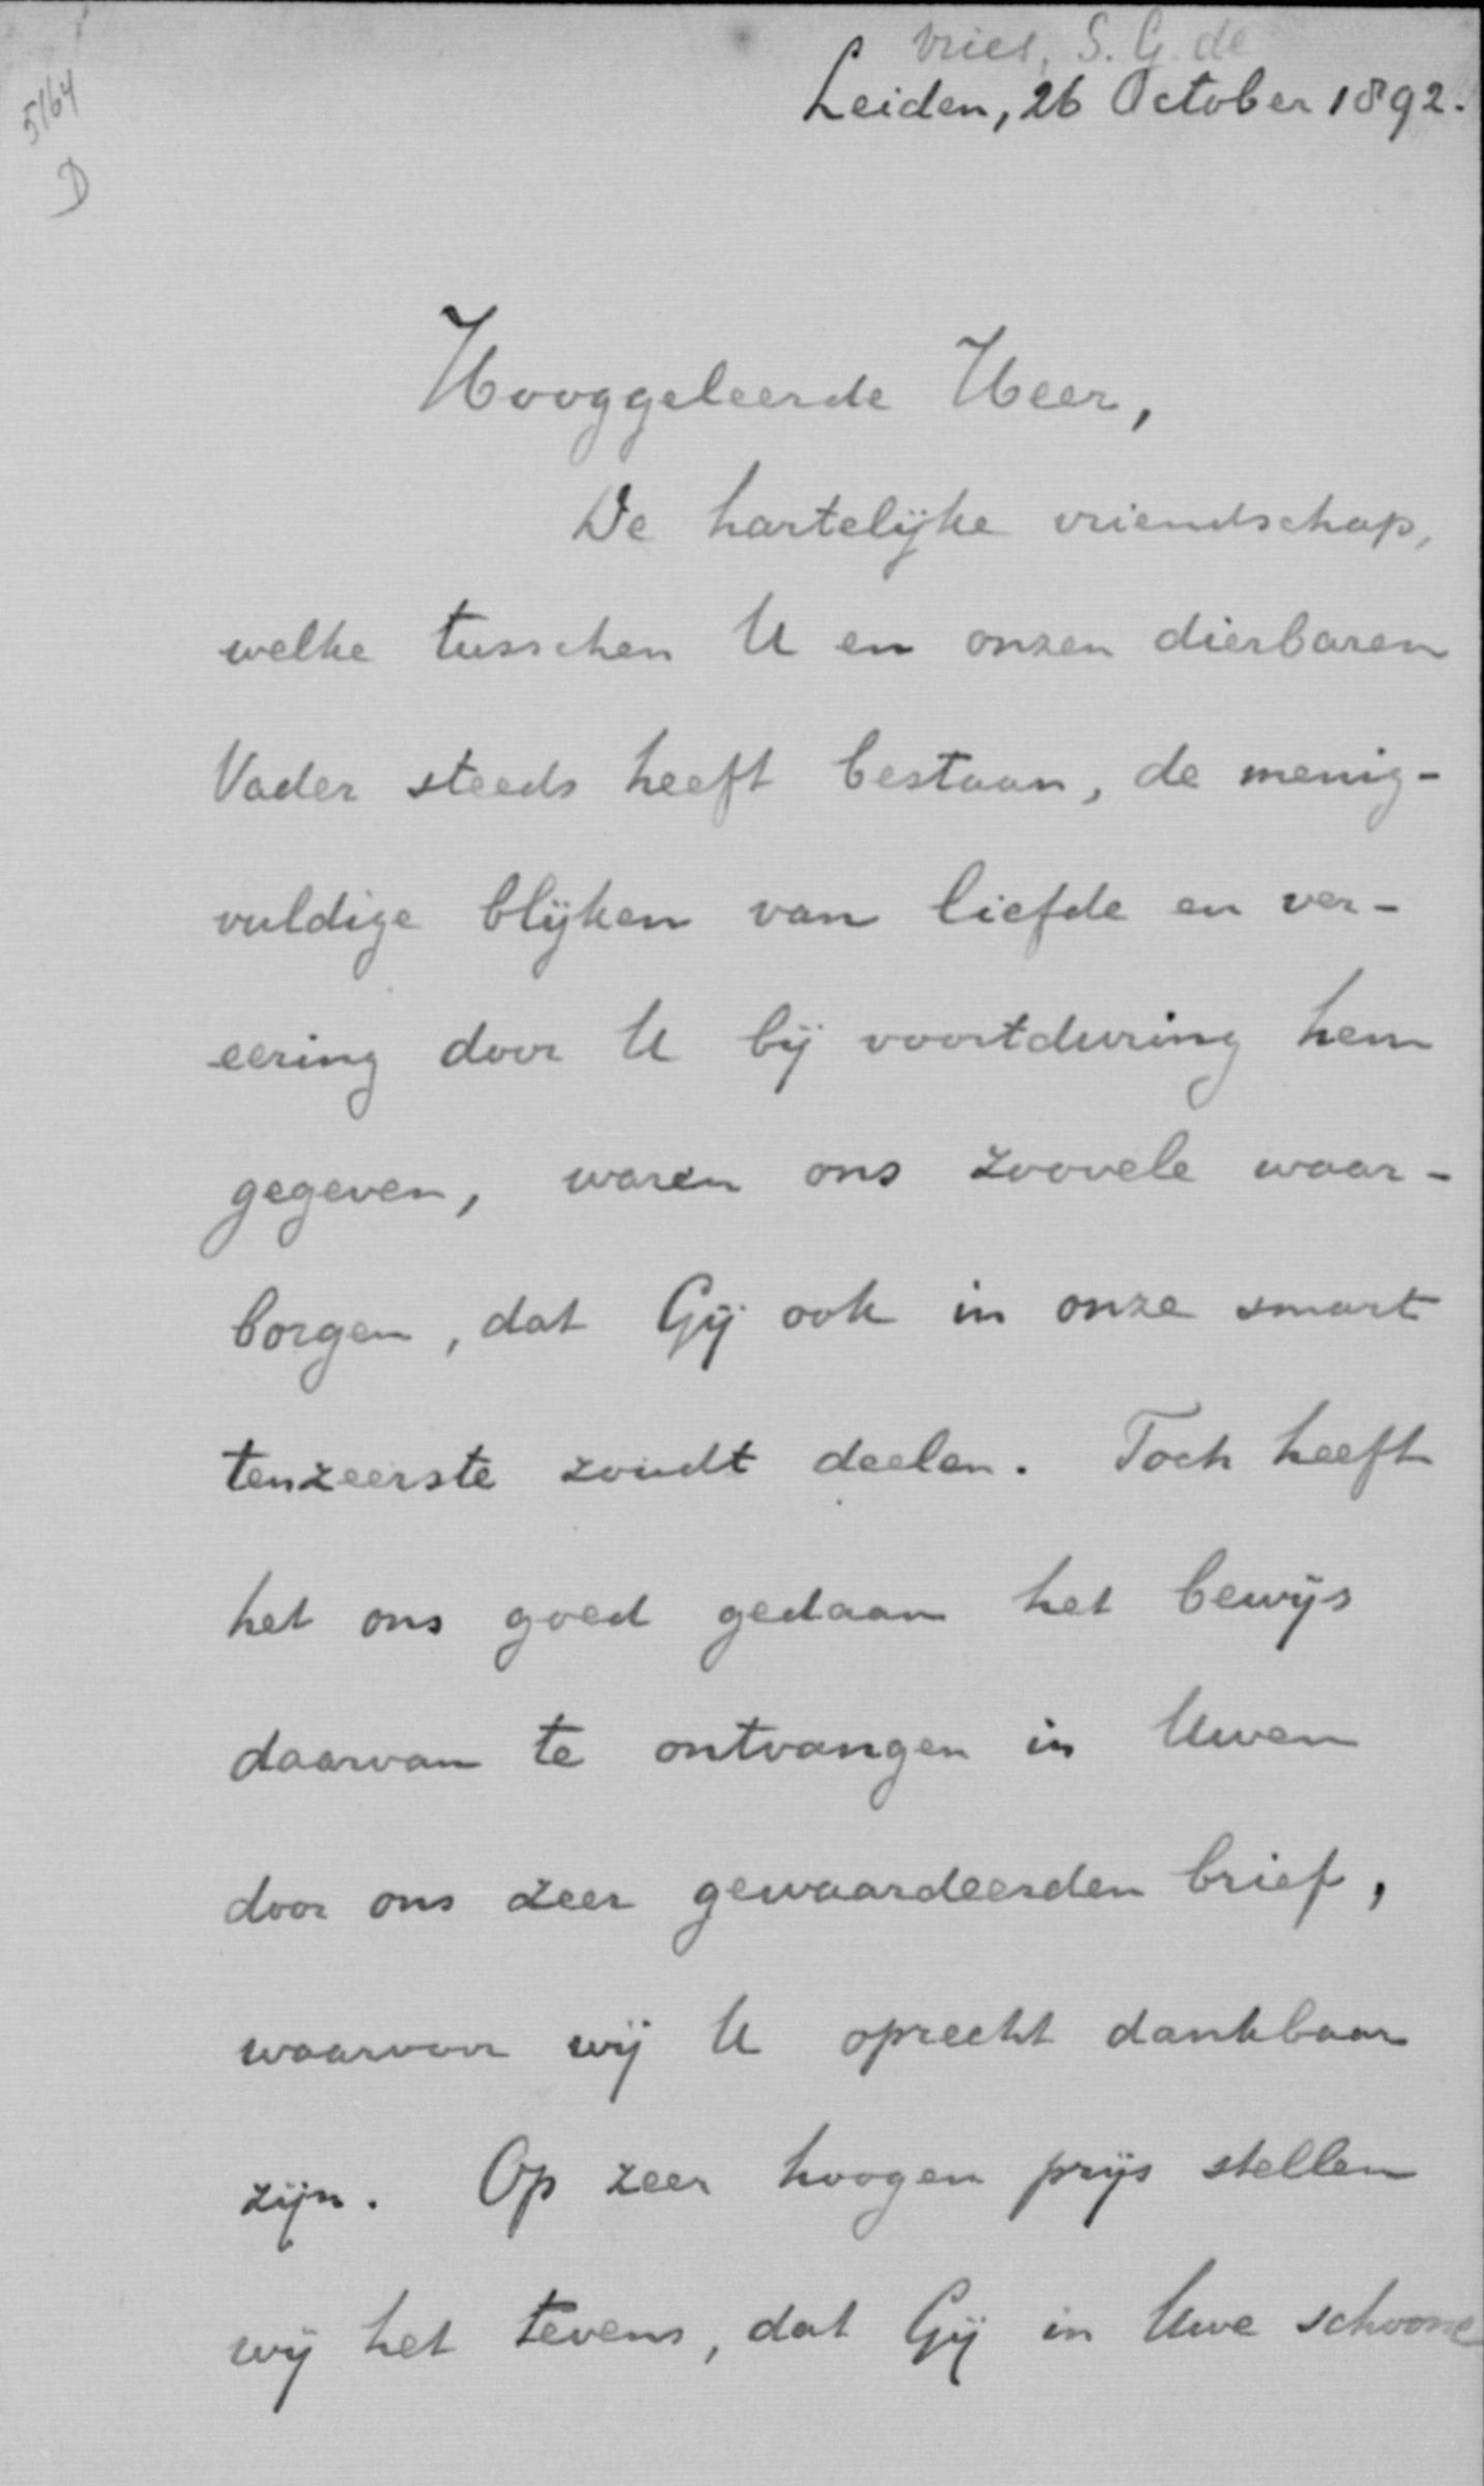 Vries, S. G. de
5164
D
Leiden, 26 October 1892.
Hooggeleerde Heer,
De hartelijke vriendschap,
welke tusschen U en onzen dierbaren
Vader steeds heeft bestaan, de menig-
vuldige blijken van liefde en ver-
eering door U bij voortduring hem
gegeven, waren ons zoovele waar-
borgen, dat Gij ook in onze smart
tenzeerste zoudt deelen. Toch heeft
het ons goed gedaan het bewijs
daarvan te ontvangen in Uwen
door ons zeer gewaardeerden brief,
waarvoor wij U oprecht dankbaar
zijn. Op zeer hoogen prijs stellen
wij het tevens, dat Gij in Uwe schoone